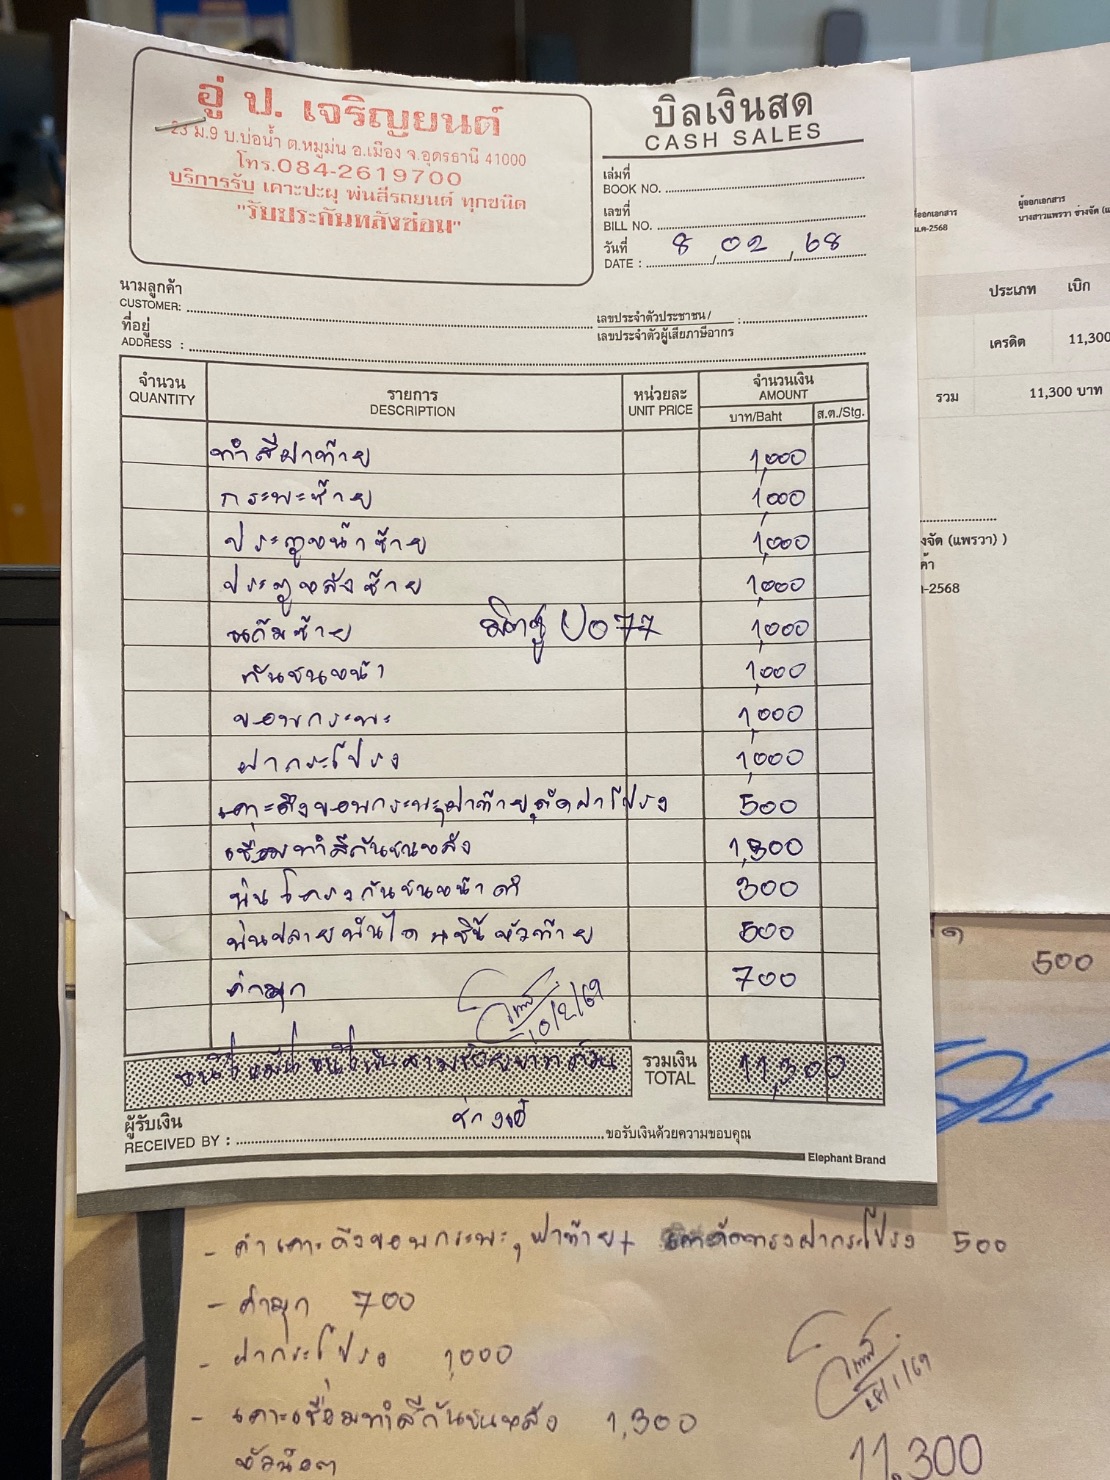 อู่ ป. เจริญยนต์
23 ม.9 บ.บ่อน้ำ ต.หมูม่น อ.เมือง จ.อุดรธานี 41000
โทร.084-2619700
บริการรับ เคาะปะผุ พ่นสีรถยนต์ ทุกชนิด
"รับประกันหลังซ่อม"
บิลเงินสด
CASH SALES
เล่มที่
BOOK NO.
เลขที่
BILL NO.
วันที่
DATE : 8 / 02 / 68
นามลูกค้า
CUSTOMER:
ที่อยู่
ADDRESS :
เลขประจำตัวประชาชน /
เลขประจำตัวผู้เสียภาษีอากร :
จำนวน
QUANTITY
รายการ
DESCRIPTION
หน่วยละ
UNIT PRICE
จำนวนเงิน
AMOUNT
บาท/Baht
ส.ต./Stg.
ทำสีฝาท้าย 1,000
กระพะซ้าย 1,000
ประตูหน้าซ้าย 1,000
ประตูหลังซ้าย 1,000
แก้มซ้าย 1,000
มิตซู บอ 77
กันชนหน้า 1,000
ขอบกระพะ 1,000
ฝากระโปรง 1,000
เคาะดึงขอบกระพะ,ฝาท้าย,ดัดฝาโปรง 500
เชื่อมทำสีกันชนหลัง 1,300
พ่นโครงกันชนหน้าดำ 300
พ่นปลายบันได 500
ค่ามุก 700
10/2/69
หนึ่งหมื่นหนึ่งพันสามร้อยบาทถ้วน
รวมเงิน
TOTAL
11,300
ผู้รับเงิน
RECEIVED BY :
ขอรับเงินด้วยความขอบคุณ
Elephant Brand
ผู้ออกเอกสาร
-2568
ประเภท เบิก
เครดิต 11,300
รวม 11,300 บาท
(แพรวา) )
-2568
500
- ค่าเคาะดึงขอบกระพะ,ฝาท้าย+ ฝากระโปรง 500
- ค่ามุก 700
- ฝากระโปรง 1,000
- เคาะเชื่อมทำสีกันชนหลัง 1,300
11,300